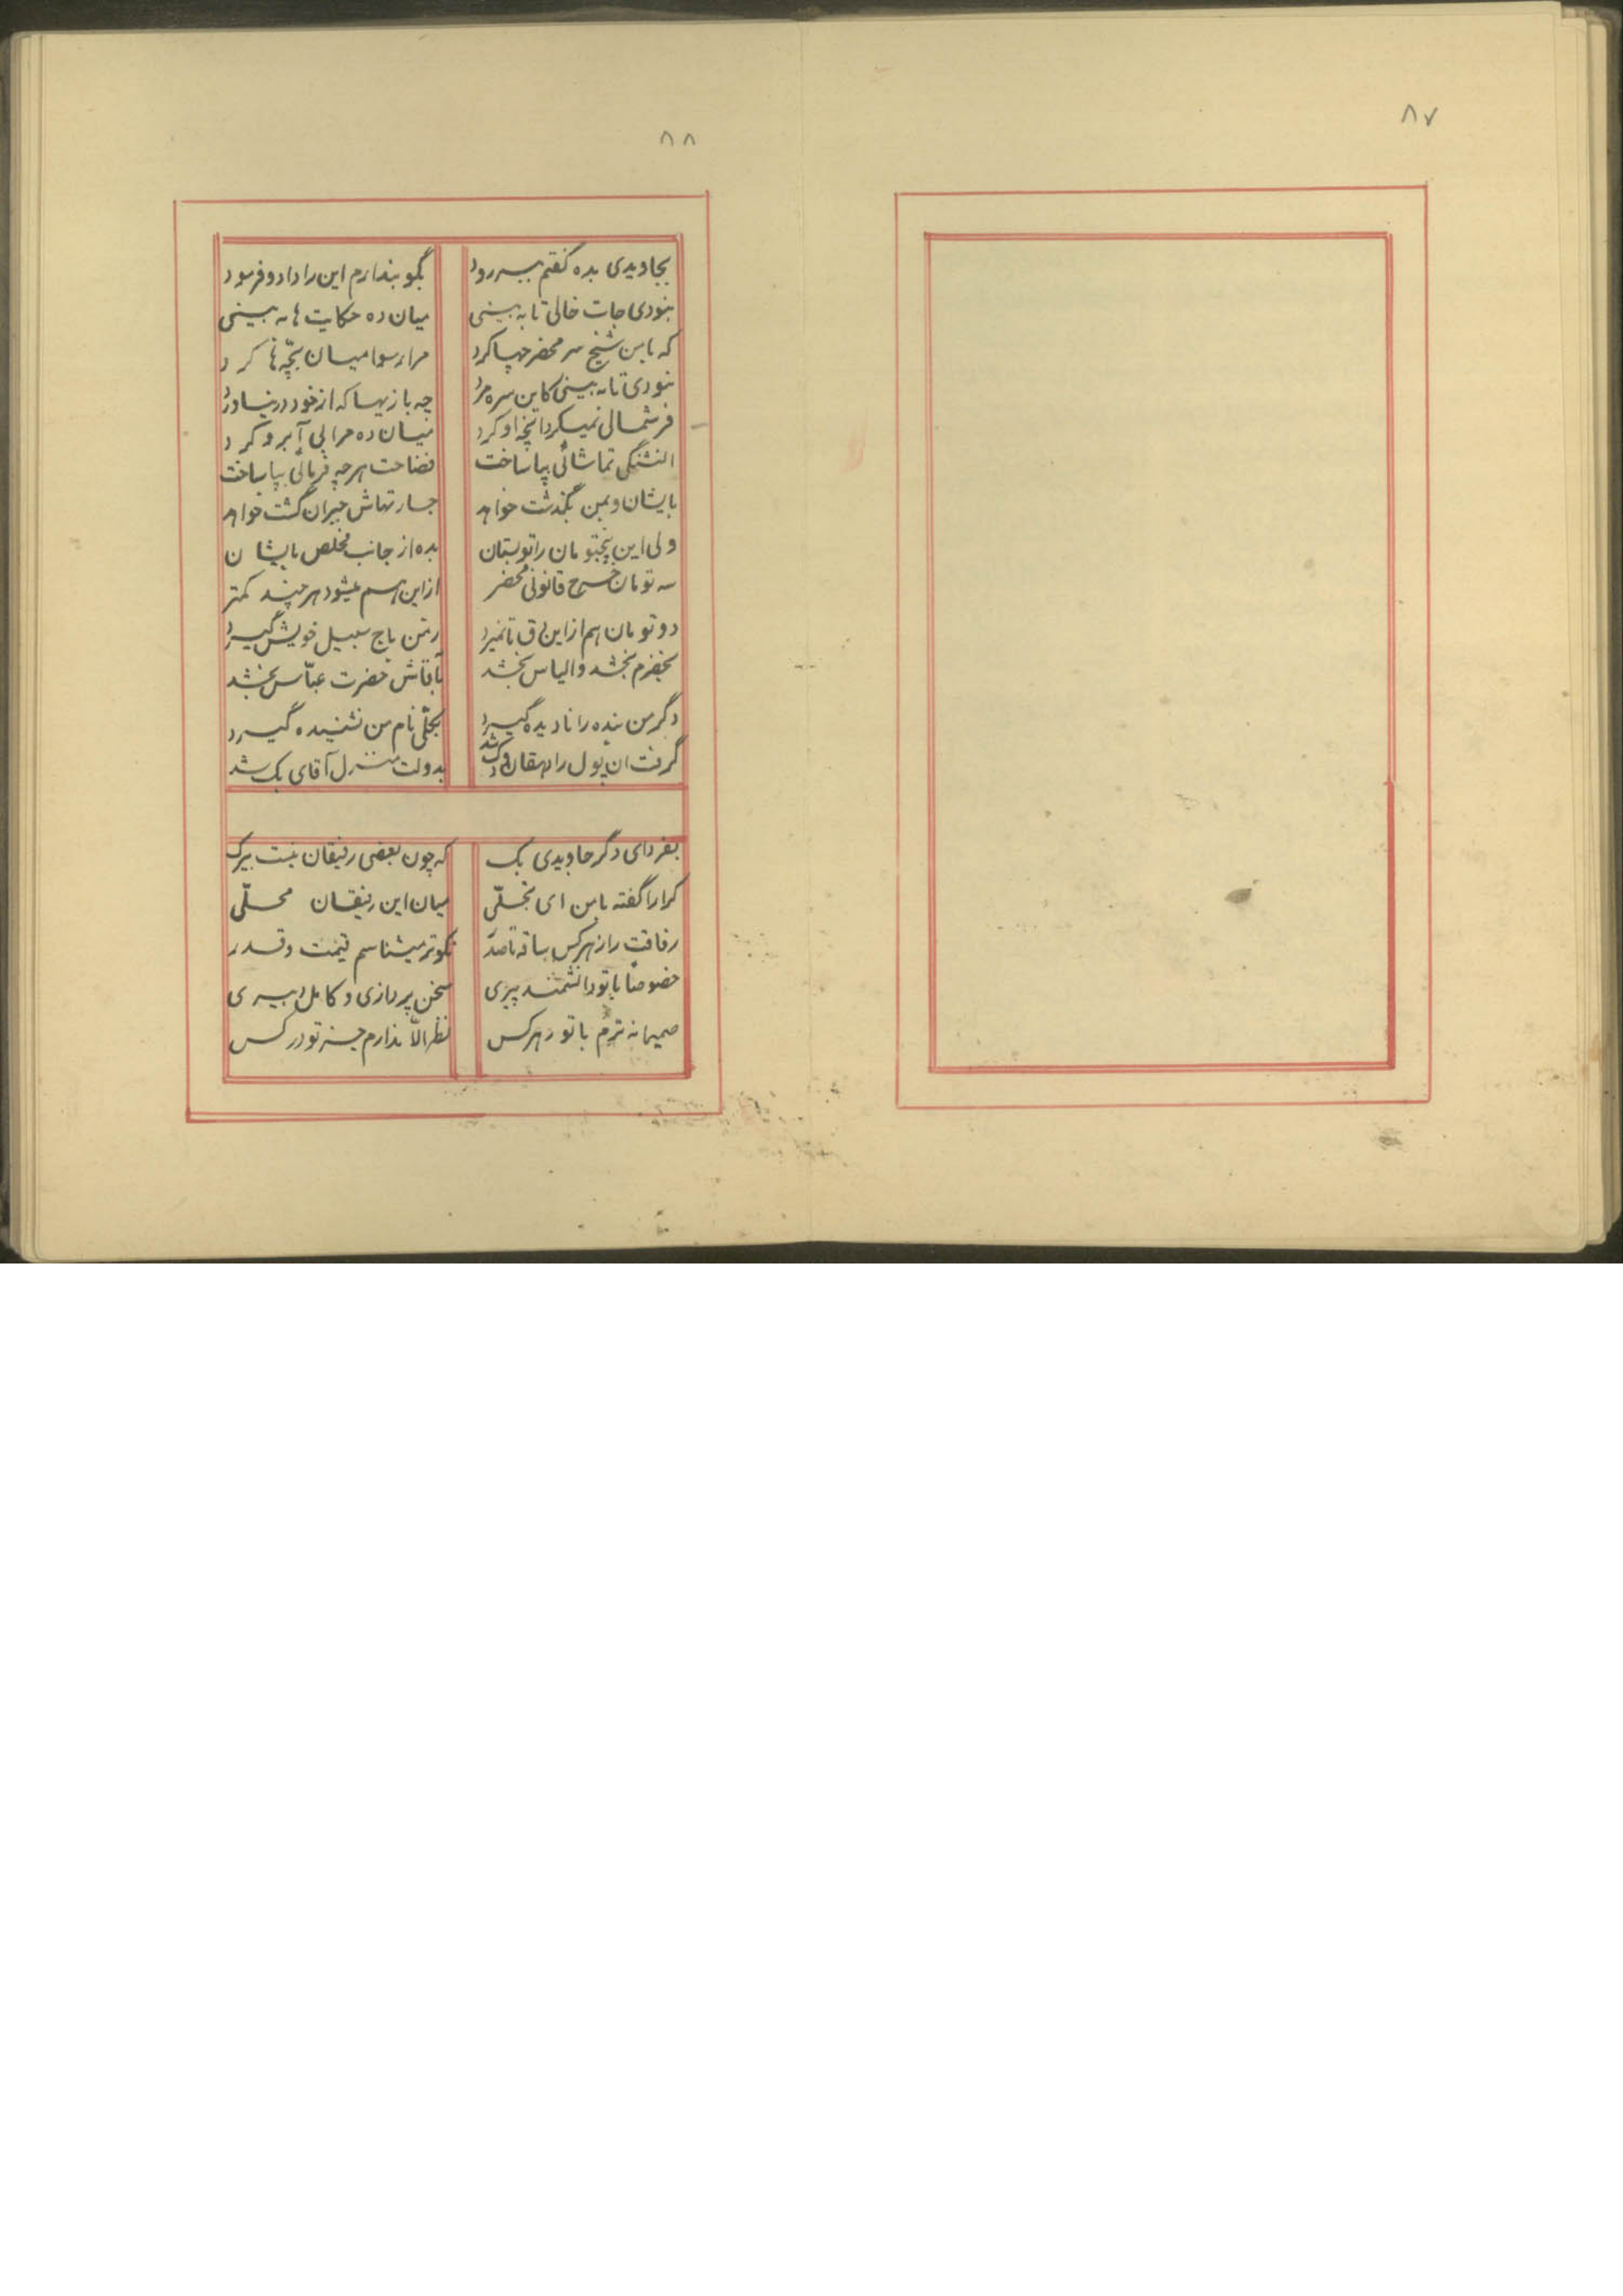 ۸۷
۸۸
بجاویدی بده گفتم ببر زود بگو بندارم این را داد و فرمود
نبودی جات خالی تا به بینی میان ده حکایت ها به بینی
که با من شیخ سر محضر چها کرد مرا رسوا میان بچّه ها کرد
نبودی تا به بینی کاین سره مرد چه بازیها که از خود در نیاورد
فرشمالی نمیکرد آنچه او کرد میان ده مرا بی آبرو کرد
النشنگی تماشائی بپا ساخت فضاحت هرچه فرمائی بپا ساخت
بایشان و بمن بگذشت خواهد جسارتهاش جبران گشت خواهد
ولی این پنجتومان را تو بستان بده از جانب مخلص بایشان
سه تومان خرج قانونی محضر از این هم میشود هر چند کمتر
دو تومان هم از این ق تا نمیرد ز من باج سبیل خویش گیرد
بخضرم بخشد و الیاس بخشد بآقاش حضرت عبّاس بخشد
دگر من بنده را نادیده گیرد بکلّی نام من نشنیده گیرد
گرفت آن پول را دهقان و دک شد بدولت منزل آقای بک شد
بفردای دگر جاویدی بک که چون بعضی رفیقان نیست بیرک
کرارا گفته با من ای تجلّی میان این رفیقان محلّی
رفاقت را ز هر کس ساقه تا صدر نکوتر میشناسم قیمت و قدر
خصوصاً با تو دانشمند پیری سخن پردازی و کامل دبیری
صمیمانه ترم با تو ز هر کس نظر الّا ندارم جز تو در کس